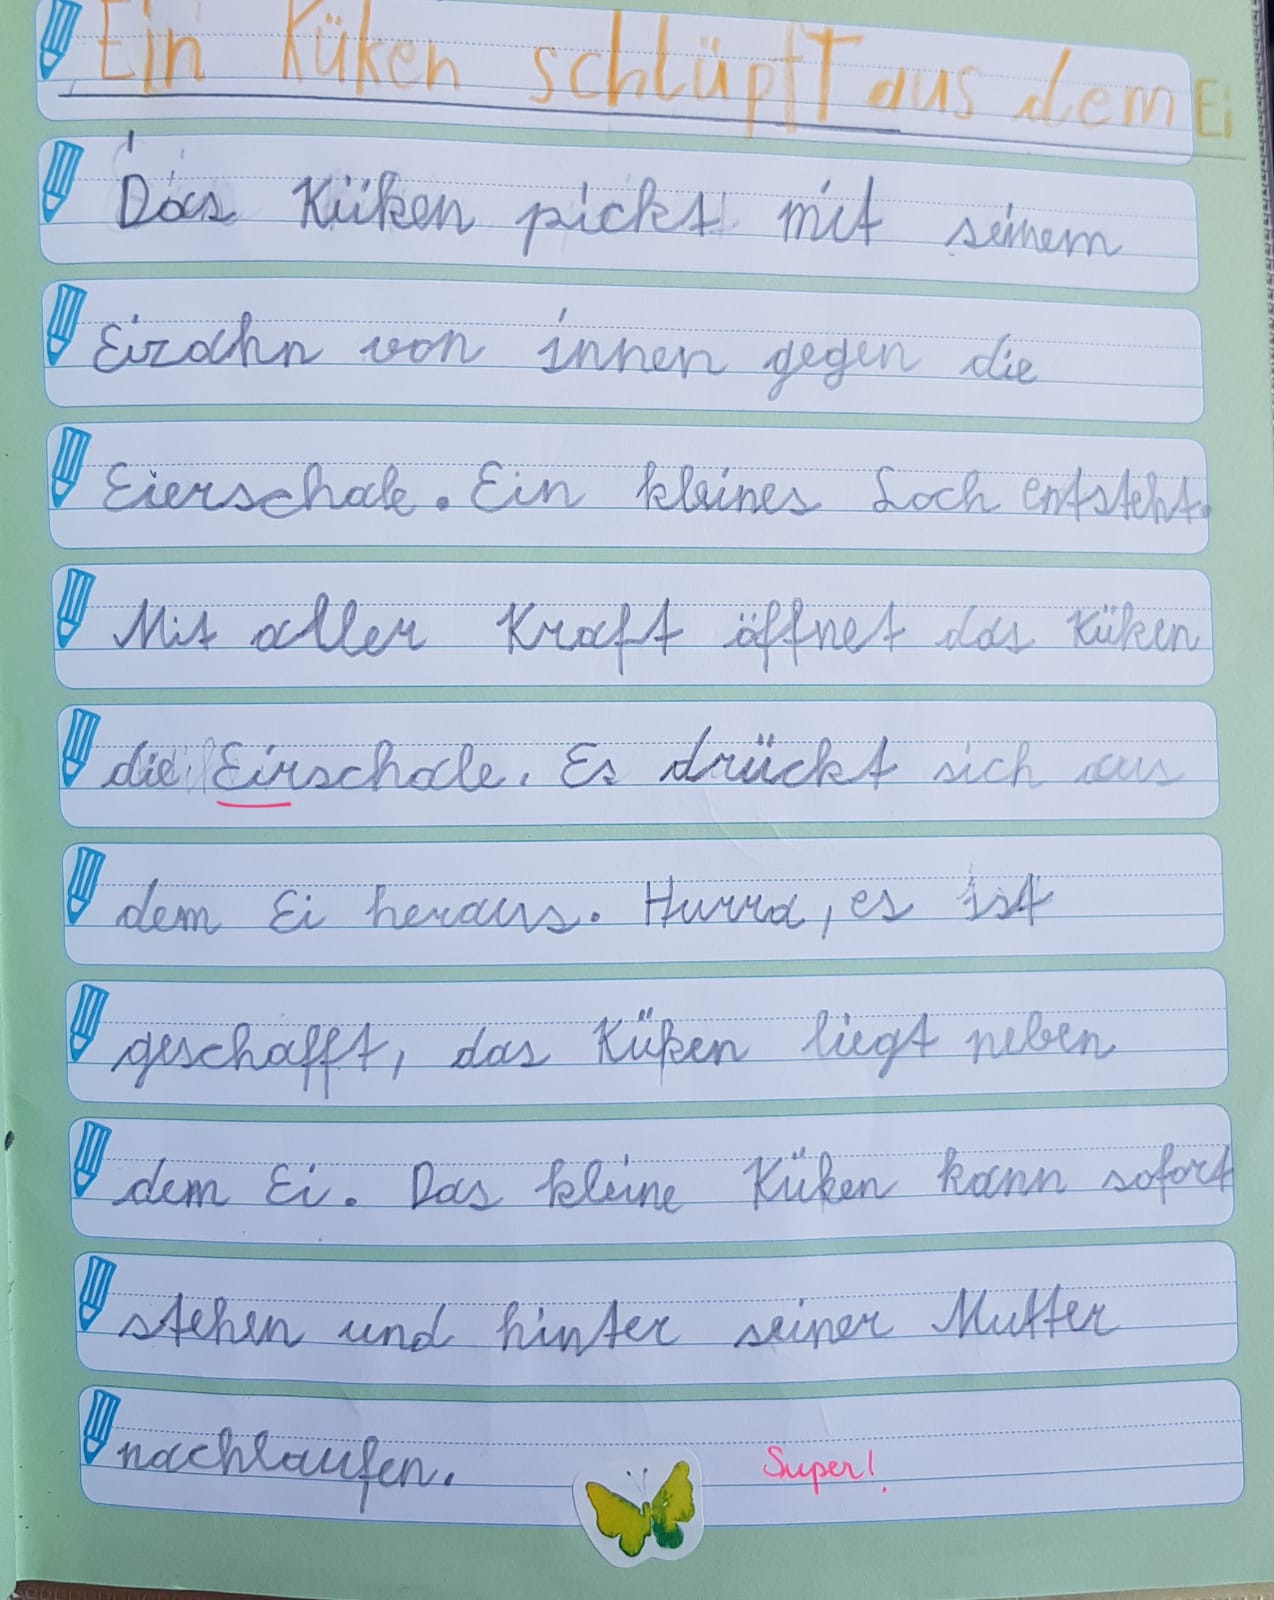 Ein Küken schlüpft aus dem Ei
Das Küken pickt mit seinem
Eizahn von innen gegen die
Eierschale. Ein kleines Loch entsteht.
Mit aller Kraft öffnet das Küken
die Eirschale. Es drückt sich aus
dem Ei heraus. Hurra, es ist
geschafft, das Küken liegt neben
dem Ei. Das kleine Küken kann sofort
stehen und hinter seiner Mutter
nachlaufen.
Super!